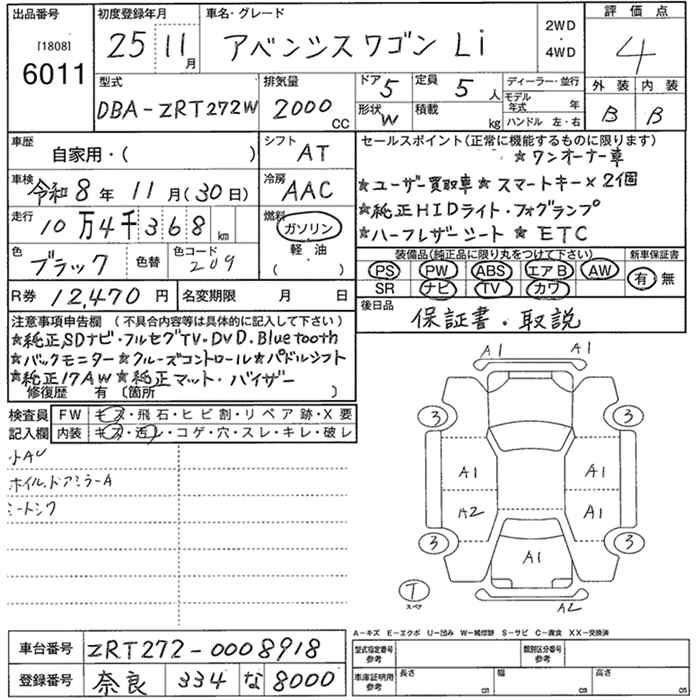 出品番号 初度登録年月 車名・グレード 2WD・4WD 評価点
[1808] 6011 25 11月 アベンシスワゴン Li 4
型式 排気量 ドア 5 定員 5人 ディーラー・並行 外装 内装
DBA-ZRT272W 2000CC 形状 W 積載 kg モデル年式 年 ハンドル 左・右 B B
車歴 自家用・( ) シフト AT セールスポイント(正常に機能するものに限ります)
☆ワンオーナー車
車検 令和8年11月(30日) 冷房 AAC ☆ユーザー買取車☆スマートキー×2個
☆純正HIDライト・フォグランプ
走行 10万4千368km 燃料 ガソリン ☆ハーフレザーシート☆ETC
軽・油
( )
色 ブラック 色替 色コード 209 装備品(純正品に限り丸をつけて下さい) 新車保証書
PS PW ABS エアB AW 有・無
SR ナビ TV カワ
R券 12,470円 名変期限 月 日 後日品
保証書・取説
注意事項申告欄 (不具合内容等は具体的に記入して下さい)
☆純正SDナビ・フルセグTV・DVD.Bluetooth
☆バックモニター☆クルーズコントロール☆パドルシフト
☆純正17AW☆純正マット・バイザー
修復歴 有 〔箇所 〕
検査員 FW キズ・飛石・ヒビ割・リペア跡・X要
記入欄 内装 キズ・汚レ・コゲ・穴・スレ・キレ・破レ
小AU
ホイル.ドアミラーA
シートシワ
A1 A1
3 3
A1 A1
A2 A1
3 3
A1
T
スペア
A2
A-キズ E-エクボ U-凹み W-補修跡 S-サビ C-腐食 XX-交換済
車台番号 ZRT272-0008918 型式指定番号 参考 類別区分番号 参考
登録番号 奈良 334 な 8000 車庫証明用 参考 長さ cm 幅 cm 高さ cm